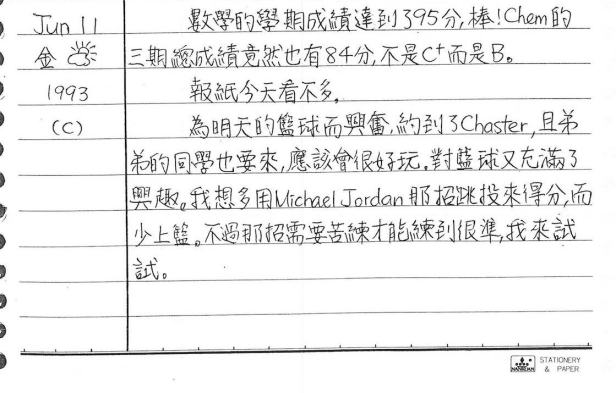 Jun 11
金
1993
(C)
數學的學期成績達到395分,棒!Chem的
三期總成績竟然也有84分,不是C+而是B。
報紙今天看不多。
為明天的籃球而興奮,約到了Chaster,且弟
弟的同學也要來,應該會很好玩。對籃球又充滿了
興趣。我想多用Michael Jordan那招跳投來得分,而
少上籃。不過那招需要苦練才能練到很準,我來試
試。
STATIONERY
& PAPER